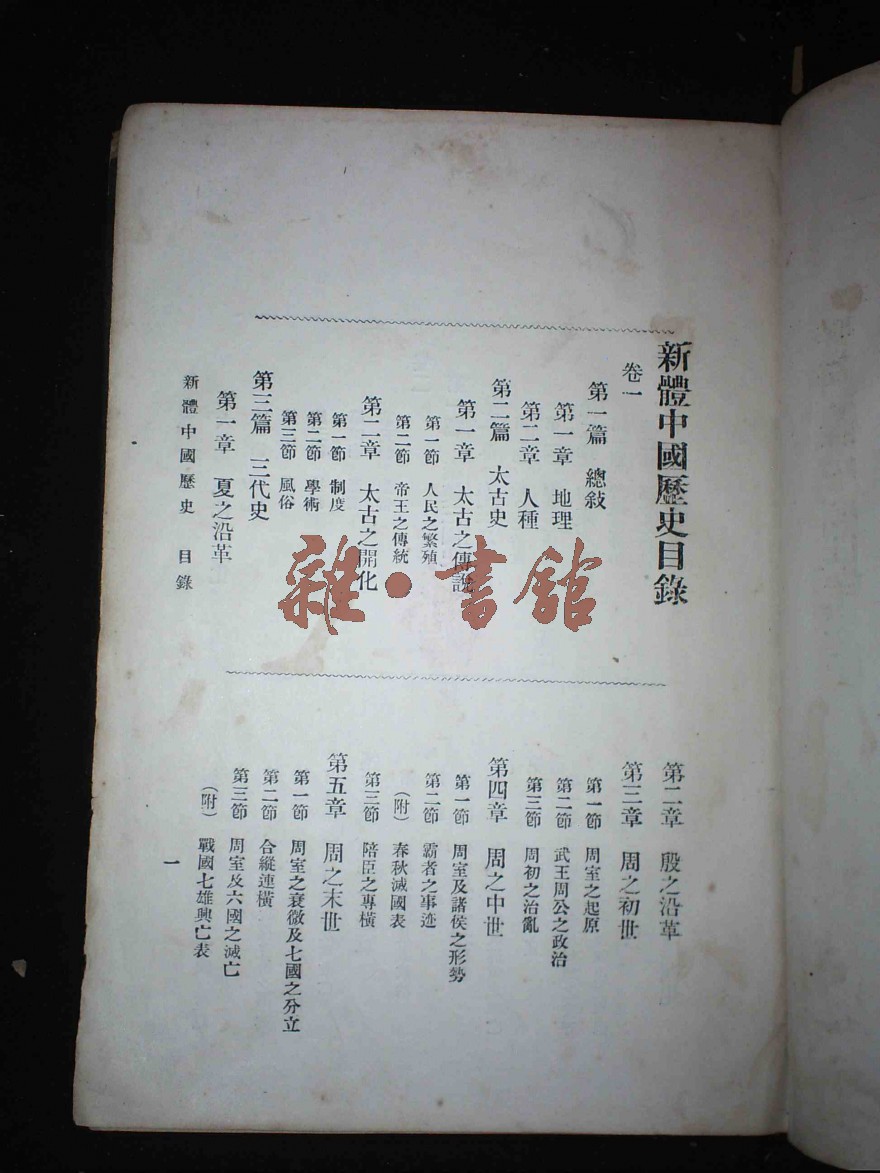 新體中國歷史目錄
卷一
第一篇 總敍
第一章 地理
第二章 人種
第二篇 太古史
第一章 太古之傳說
第一節 人民之繁殖
第二節 帝王之傳統
第二章 太古之開化
第一節 制度
第二節 學術
第三節 風俗
第三篇 三代史
第一章 夏之沿革
第二章 殷之沿革
第三章 周之初世
第一節 周室之起原
第二節 武王周公之政治
第三節 周初之治亂
第四章 周之中世
第一節 周室及諸侯之形勢
第二節 霸者之事迹
(附) 春秋滅國表
第三節 陪臣之專橫
第五章 周之末世
第一節 周室之衰微及七國之分立
第二節 合縱連橫
第三節 周室及六國之滅亡
(附) 戰國七雄興亡表
新體中國歷史 目錄
一
雜·書館